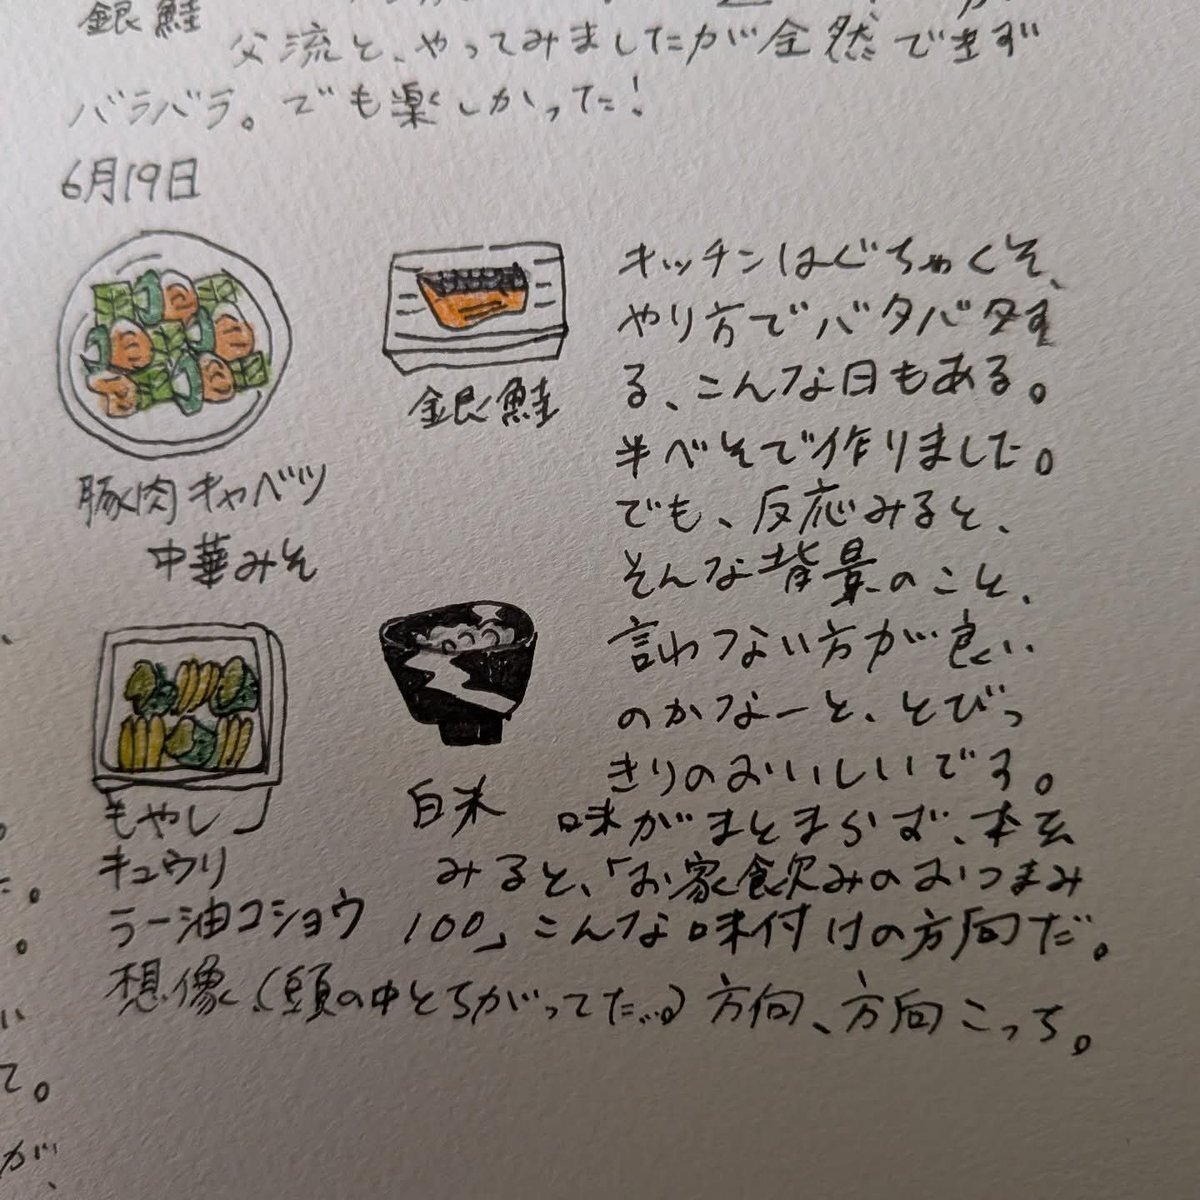 銀鮭
父流と、やってみましたが全然できず
バラバラ。でも楽しかった!
6月19日
豚肉キャベツ
中華みそ
銀鮭
もやし
キュウリ
ラー油コショウ
白米
キッチンはぐちゃぐちゃ、
やり方でバタバタす
る、こんな日もある。
半べそで作りました。
でも、反応みると、
そんな背景のこと、
言わない方が良い
のかなーと、とびっ
きりのおいしいです。
味がまとまらず、本
みると、「お家飲みのおつまみ
100」こんな味付けの方向だ。
想像(頭の中とちがってた…)方向、方向こっち。